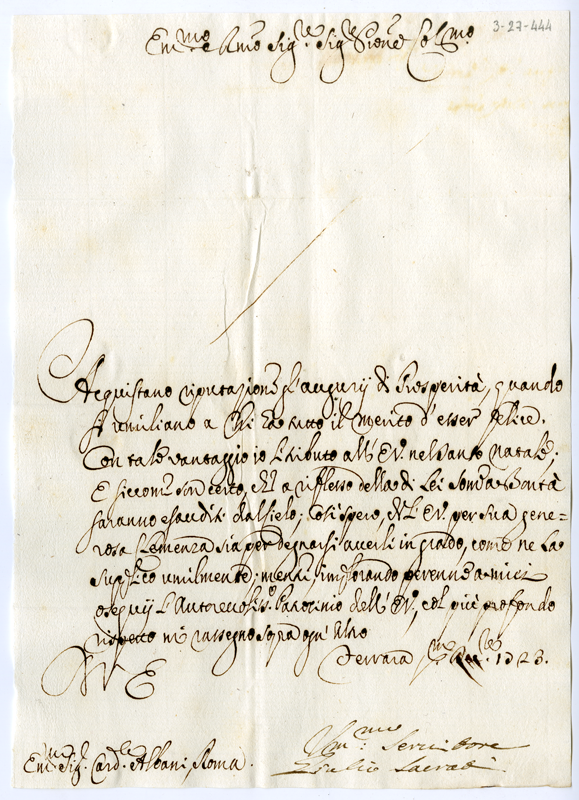 3-27-444
Em.mo e Rmo Sig.re Sig.re Prone Col.mo
Acquistano riputazione gl'augurij di Prosperità, quando
si umiliano a Chi hà tutto il merito d'esser felice.
Con tale vantaggio io li tributo all'E.V. nel Santo Natale;
E siccome son certo, che a riflesso della di Lei Somma Bontà
saranno esauditi dal Cielo; così spero, che l'E.V. per Sua gene=
rosa Clemenza sia per degnarsi averli in grado, come ne la
Supplico umilmente; mentre implorando perenne a miei
ossequij l'Autorevoliss.o Patrocinio dell'E.V., col più profondo
rispetto mi rassegno sopra ogn'altro
Di V. E.
Ferrara 1723.
Em.mo Sig.r Card.le Albani, Roma.
Um.mo Servidore
Giulio Sacrati